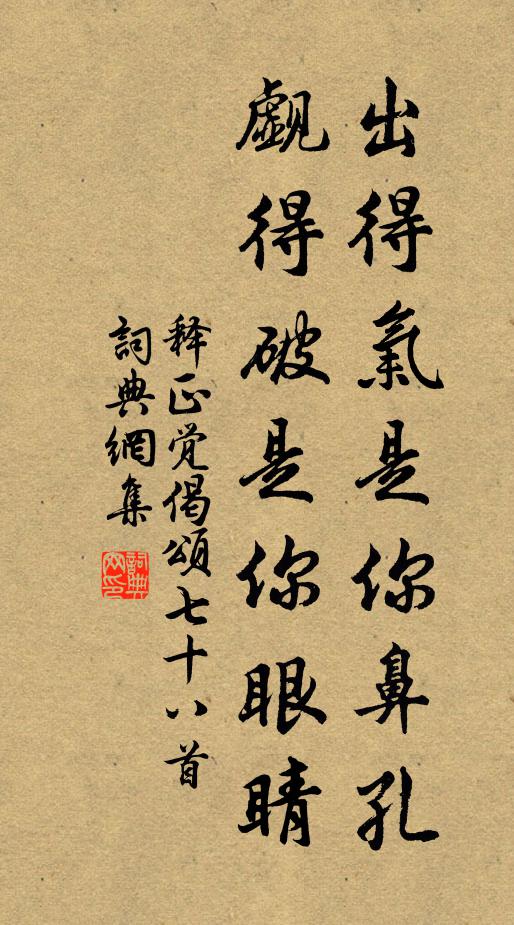 出得氣是你鼻孔
覷得破是你眼睛
释正觉偈頌七十八首
詞典網集
詞典网印